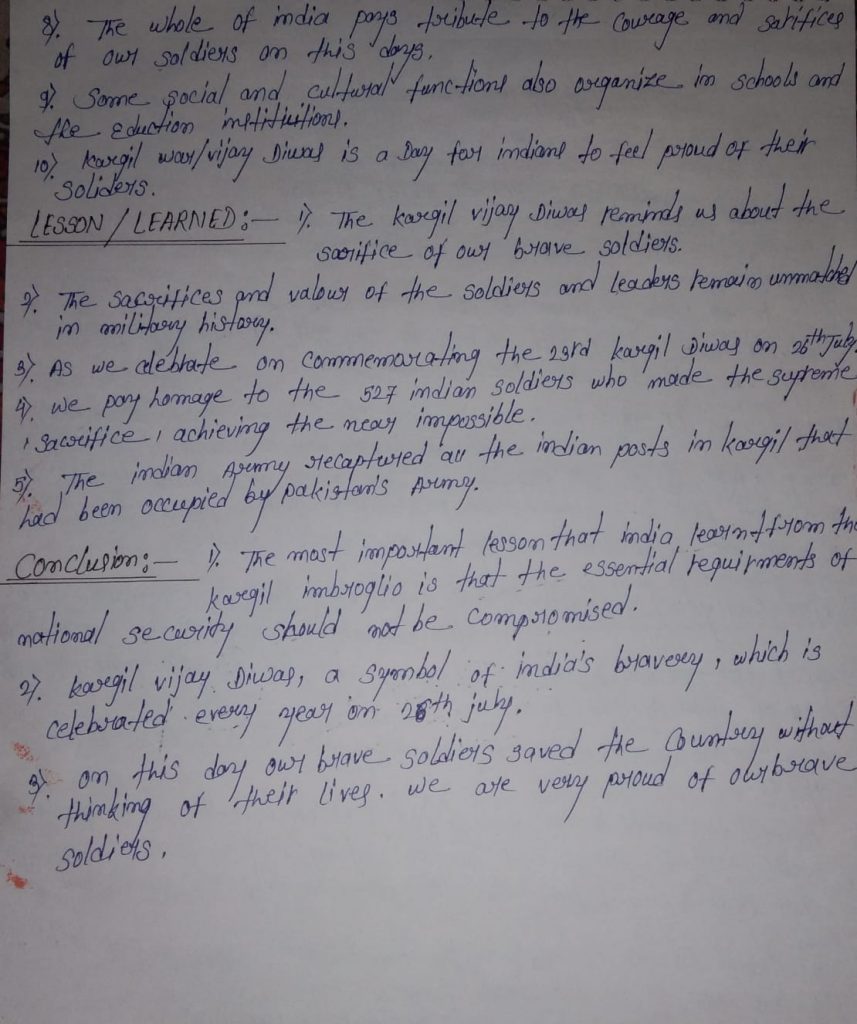 8). The whole of india pays tribute to the courage and satifices
of our soldiers on this days.
9). Some social and cultural functions also organize in schools and
the eduction institiutions.
10). kargil war/vijay Diwas is a Day for indians to feel proud of their
soliders.
LESSON / LEARNED :- 1). The kargil vijay Diwas reminds us about the
sarifice of our brave soldiers.
2). The sacrifices and valour of the soldiers and leaders remain unmatched
in military history.
3). As we clebrate on commemorating the 23rd kargil Diwas on 26th July.
4). we pay homage to the 527 indian soldiers who made the supreme
sacrifice, achieving the near impossible.
5). The indian Army recaptured all the indian posts in kargil that
had been occupied by pakistan's Army.
Conclusion :- 1). The most important lesson that india learnt from the
kargil imbroglio is that the essential requirments of
national security should not be compromised.
2). kargil vijay Diwas, a symbol of india's bravery, which is
celebrated every year on 26th july.
3). on this day our brave soldiers saved the country without
thinking of their lives. we are very proud of our brave
soldiers.